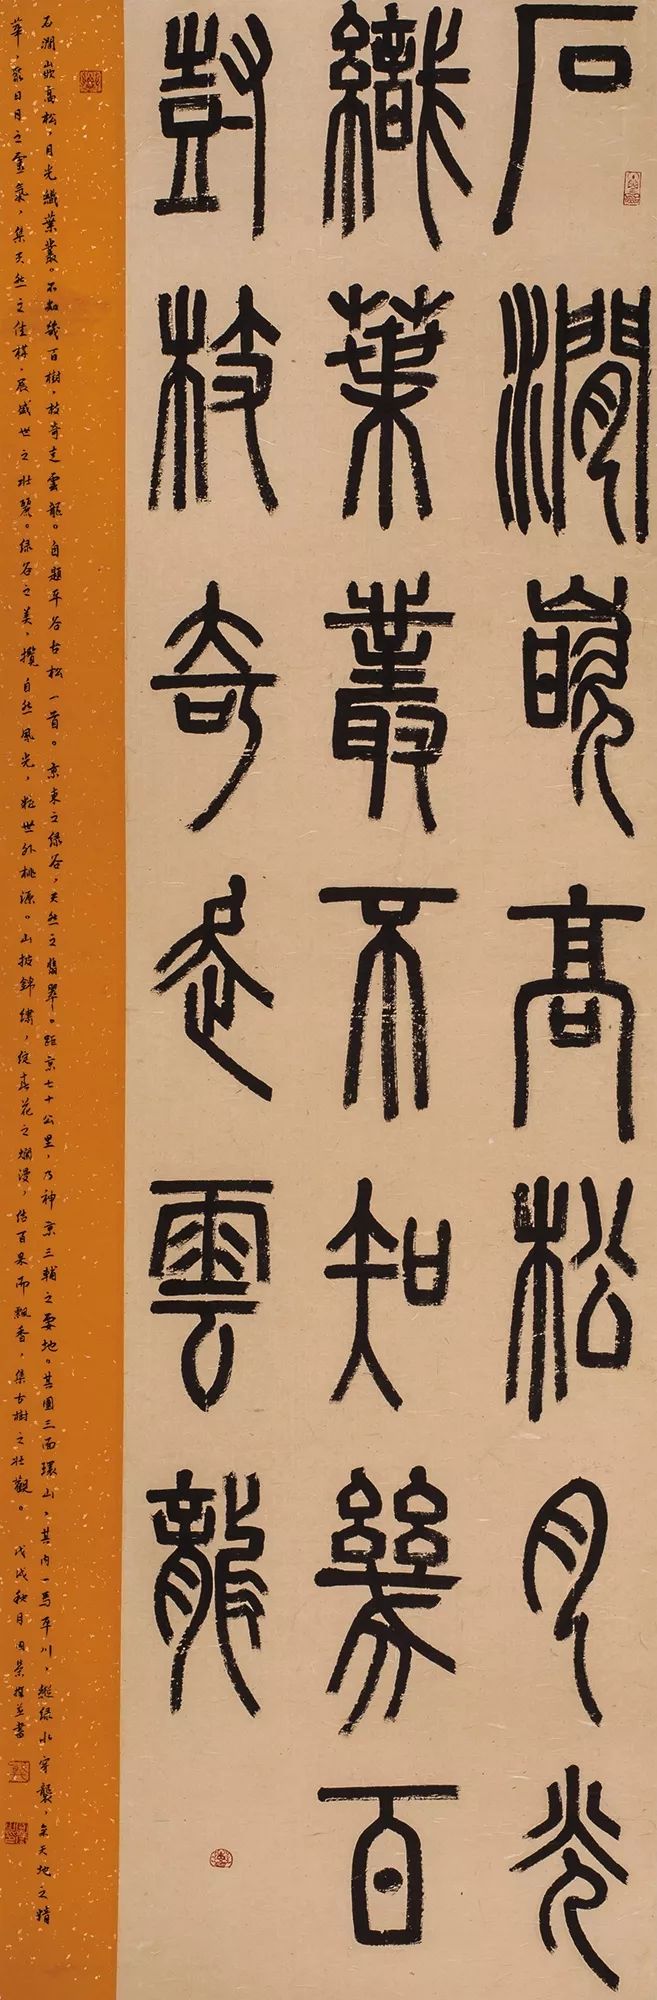 石澗嵌高松月光
織葉叢不知幾百
尌枝奇走雲龍
石澗嵌高松，月光織葉叢。不知幾百樹，枝奇走雲龍。自題平谷古松一首。京東之綠谷，天然之翡翠。距京七十公里，乃神京三輔之要地。其團三面環山，其內一馬平川，繼綠水穿襲，合天地之精
華，聚日月之靈氣，集天然之佳構，展盛世之壯麗。綠谷之美，攬自然風光，壯世外桃源。山披錦繡，綻春花之爛漫，結百果而飄香，集古樹之壯觀。戊戌秋月 並書